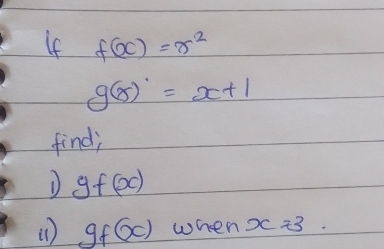 If f(x) = x²
g(x) = x+1
find;
i) gf(x)
ii) gf(x) when x=3.